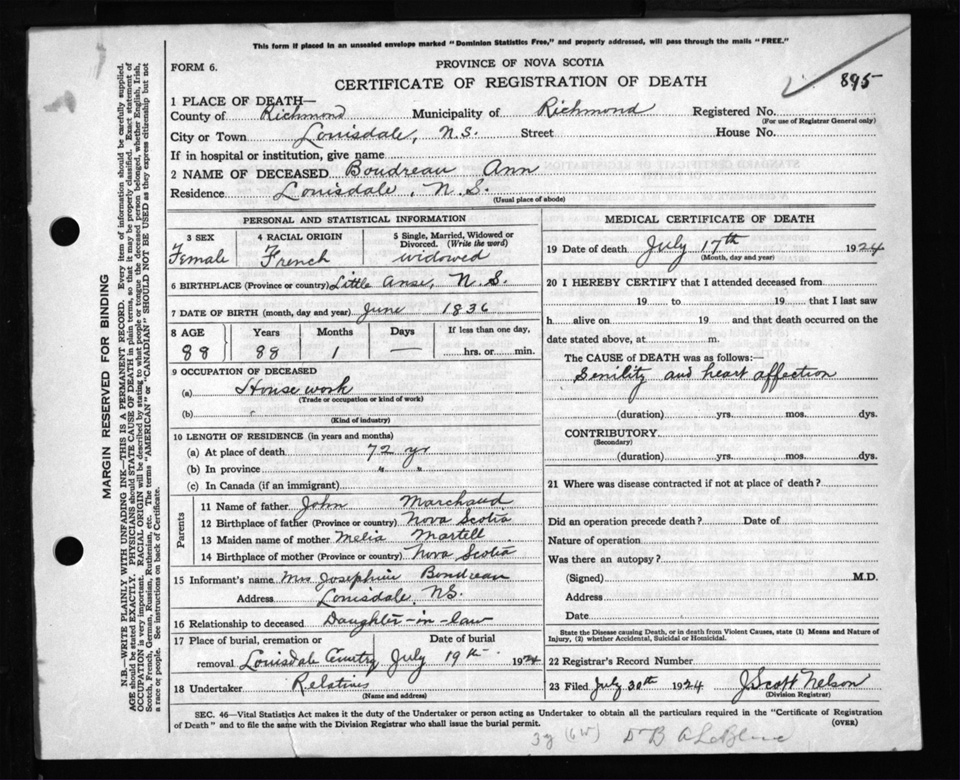 This form if placed in an unsealed envelope marked "Dominion Statistics Free," and properly addressed, will pass through the mails "FREE."
FORM 6.
PROVINCE OF NOVA SCOTIA
CERTIFICATE OF REGISTRATION OF DEATH
895
1 PLACE OF DEATH—
County of Richmond Municipality of Richmond Registered No.
(For use of Registrar General only)
City or Town Louisdale, N.S. Street House No.
If in hospital or institution, give name
2 NAME OF DECEASED Boudreau Ann
Residence Louisdale, N.S.
(Usual place of abode)
PERSONAL AND STATISTICAL INFORMATION
3 SEX 4 RACIAL ORIGIN 5 Single, Married, Widowed or Divorced. (Write the word)
Female French widowed
6 BIRTHPLACE (Province or country) Little Anse, N.S.
7 DATE OF BIRTH (month, day and year) June 1836
8 AGE Years Months Days If less than one day,
88 88 1 — hrs. or min.
9 OCCUPATION OF DECEASED
(a) House work
(Trade or occupation or kind of work)
(b)
(Kind of industry)
10 LENGTH OF RESIDENCE (in years and months)
(a) At place of death 72 yr
(b) In province " "
(c) In Canada (if an immigrant)
Parents
11 Name of father John Marchand
12 Birthplace of father (Province or country) Nova Scotia
13 Maiden name of mother Melia Martell
14 Birthplace of mother (Province or country) Nova Scotia
15 Informant's name Mrs Josephine Boudreau
Address Louisdale, NS.
16 Relationship to deceased Daughter-in-law
17 Place of burial, cremation or removal Date of burial
Louisdale Cemetry July 19th 1924
18 Undertaker Relatives
(Name and address)
MEDICAL CERTIFICATE OF DEATH
19 Date of death July 17th 1924
(Month, day and year)
20 I HEREBY CERTIFY that I attended deceased from
19 to 19 that I last saw
h alive on 19 and that death occurred on the
date stated above, at m.
The CAUSE of DEATH was as follows:—
Senility and heart affection
(duration) yrs. mos. dys.
CONTRIBUTORY
(Secondary)
(duration) yrs. mos. dys.
21 Where was disease contracted if not at place of death?
Did an operation precede death? Date of
Nature of operation
Was there an autopsy?
(Signed) M.D.
Address
Date
State the Disease causing Death, or in death from Violent Causes, state (1) Means and Nature of
Injury, (2) whether Accidental, Suicidal or Homicidal.
22 Registrar's Record Number
23 Filed July 30th 1924 J Scott Nelson
(Division Registrar)
SEC. 46—Vital Statistics Act makes it the duty of the Undertaker or person acting as Undertaker to obtain all the particulars required in the "Certificate of Registration
of Death" and to file the same with the Division Registrar who shall issue the burial permit. (OVER)
Dr B A LeBlanc
MARGIN RESERVED FOR BINDING
N.B.—WRITE PLAINLY WITH UNFADING INK—THIS IS A PERMANENT RECORD. Every item of information should be carefully supplied.
AGE should be stated EXACTLY. PHYSICIANS should STATE CAUSE OF DEATH in plain terms, so that it may be properly classified. Exact statement of
OCCUPATION is very important. RACIAL ORIGIN will be described by stating to what people or tongue the deceased person belonged, whether English, Irish,
Scotch, French, German, Russian, Ruthenian, etc. The terms "AMERICAN" or "CANADIAN" SHOULD NOT BE USED as they express citizenship but not
a race or people. See instructions on back of Certificate.